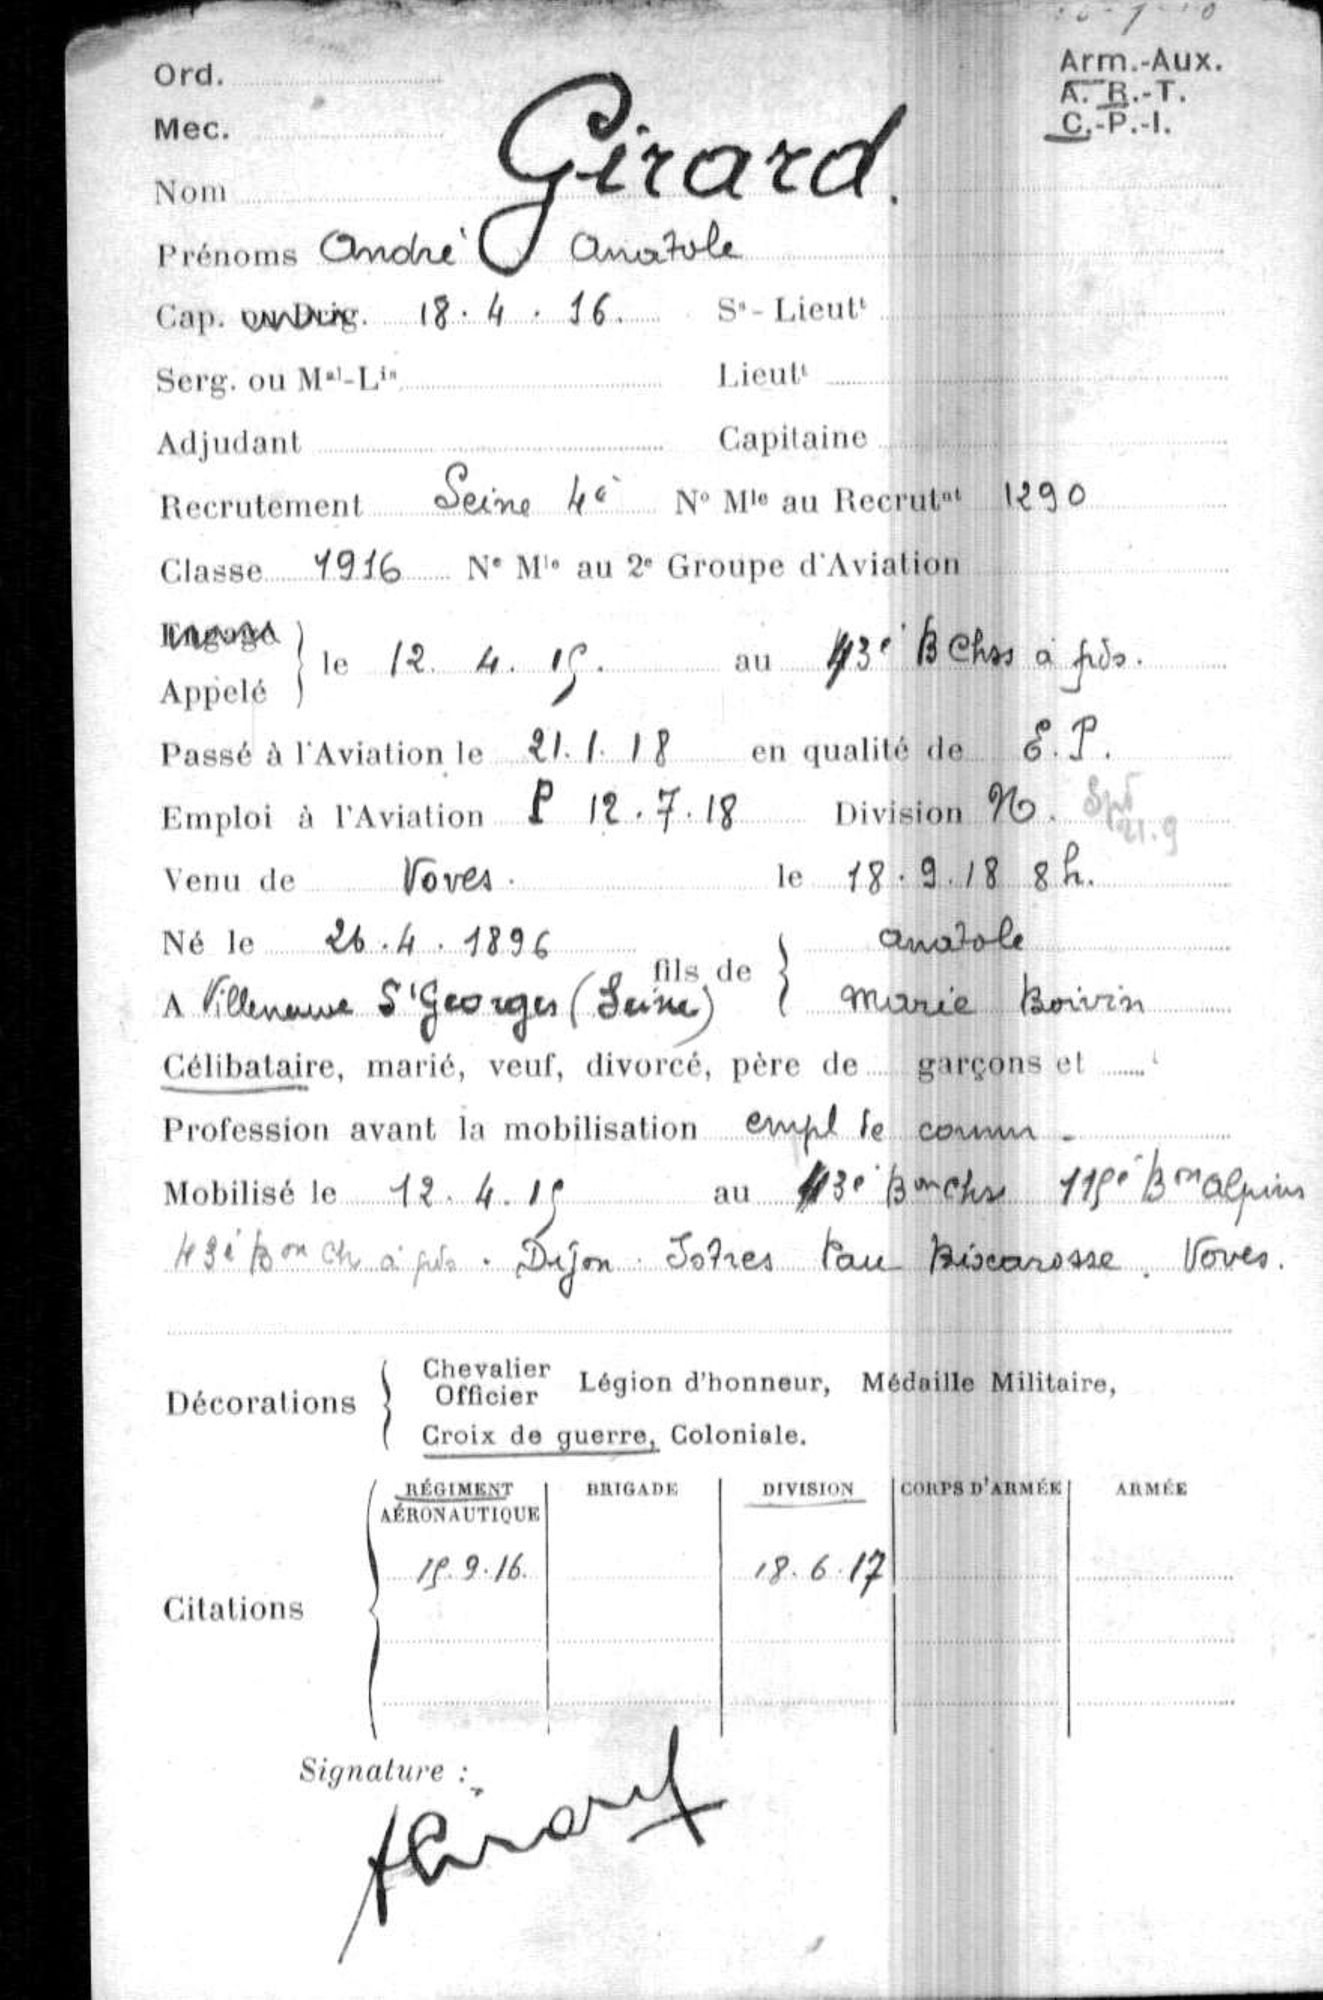 Arm.-Aux.
Ord.
A. R.-T.
Mec.
C.-P.-I.
Nom Girard.
Prénoms André Anatole
Cap. ou Brig. 18.4.16. Sˢ-Lieutᵗ
Serg. ou Mᵃˡ-Lⁱˢ
Lieutᵗ
Adjudant Capitaine
Recrutement Seine 4è Nº Mˡᵉ au Recrutⁿᵗ 1290
Classe 1916 Nº Mˡᵉ au 2ᵉ Groupe d'Aviation
Engagé
Appelé
le 12. 4. 15. au 43è B Chss à pds.
Passé à l'Aviation le 21.1.18 en qualité de E.P.
Emploi à l'Aviation P 12.7.18 Division N. Spd
21.9
Venu de Voves. le 18.9.18 8 h.
Né le 26.4.1896 fils de Anatole
A Villeneuve Sᵗ Georges (Seine) Marie Boivin
Célibataire, marié, veuf, divorcé, père de garçons et
Profession avant la mobilisation empl de comm
Mobilisé le 12.4.15 au 43è Bᵒⁿ Chs 115è Bᵒⁿ alpins
43è Bᵒⁿ Ch à pds. Dijon. Istres Pau Biscarosse. Voves.
Décorations
Chevalier
Officier
Légion d'honneur, Médaille Militaire,
Croix de guerre, Coloniale.
RÉGIMENT BRIGADE DIVISION CORPS D'ARMÉE ARMÉE
AÉRONAUTIQUE
15.9.16. 18.6.17
Citations
Signature :
AGirard